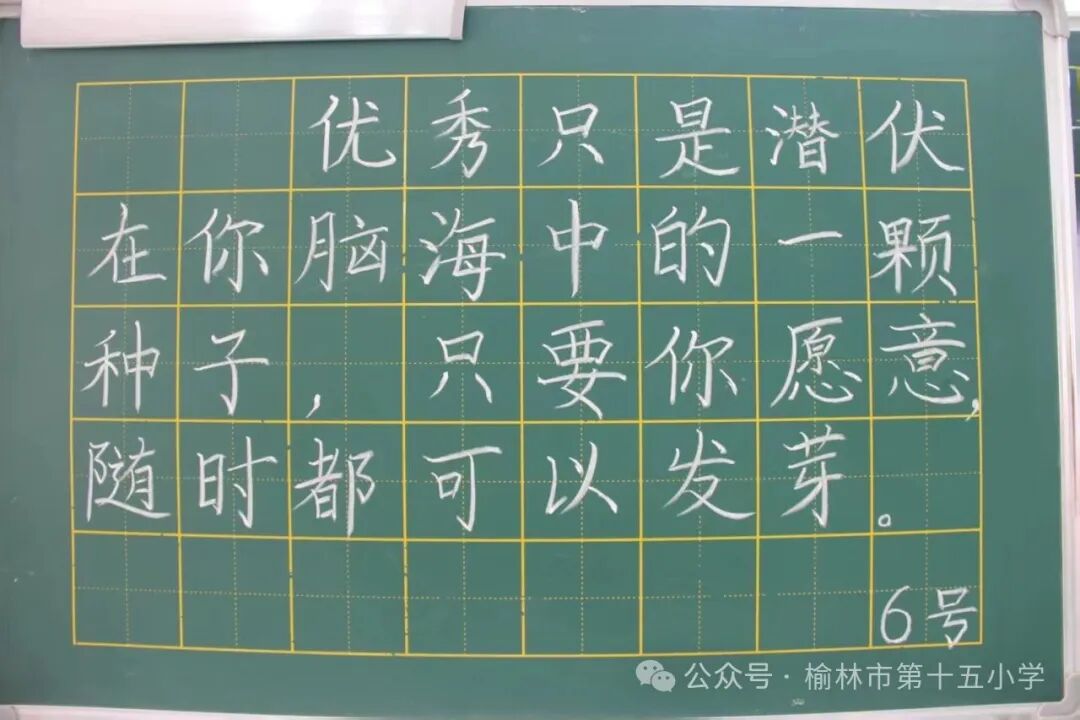 优秀只是潜伏
在你脑海中的一颗
种子，只要你愿意，
随时都可以发芽。
6号
公众号·榆林市第十五小学